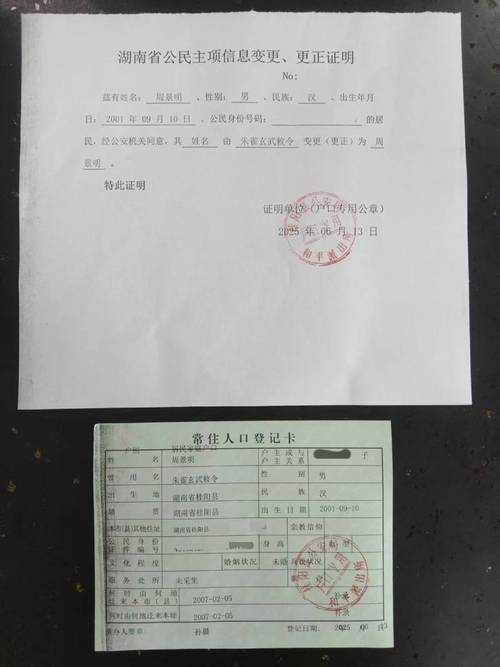 湖南省公民主项信息变更、更正证明
No:
兹有姓名: 周景明 、性别: 男 、民族: 汉 、出生年月
日: 2001 年 09 月 10 日、公民身份号码: 的居
民，经公安机关同意，其 姓名 由 朱雀玄武敕令 变更（更正）为 周
景明 。
特此证明
证明单位（户口专用公章）
2025 年 06 月 13 日
和平派出所
常住人口登记卡
户别 居民家庭户口 户主或与户主关系 子
姓名 周景明 性别 男
曾用名 朱雀玄武敕令
出生地 湖南省桂阳县 民族 汉
籍贯 湖南省桂阳县 出生日期 2001-09-10
本市(县)其他住址 湖南省桂阳县 宗教信仰
公民身份证件编号 身高 血型
文化程度 婚姻状况 未婚 兵役状况
服务处所 未采集
何时由何地迁来本市(县) 2007-02-05
何时由何地迁来本址 2007-02-05
承办人签章: 孙晨 登记日期: 2025 06 13